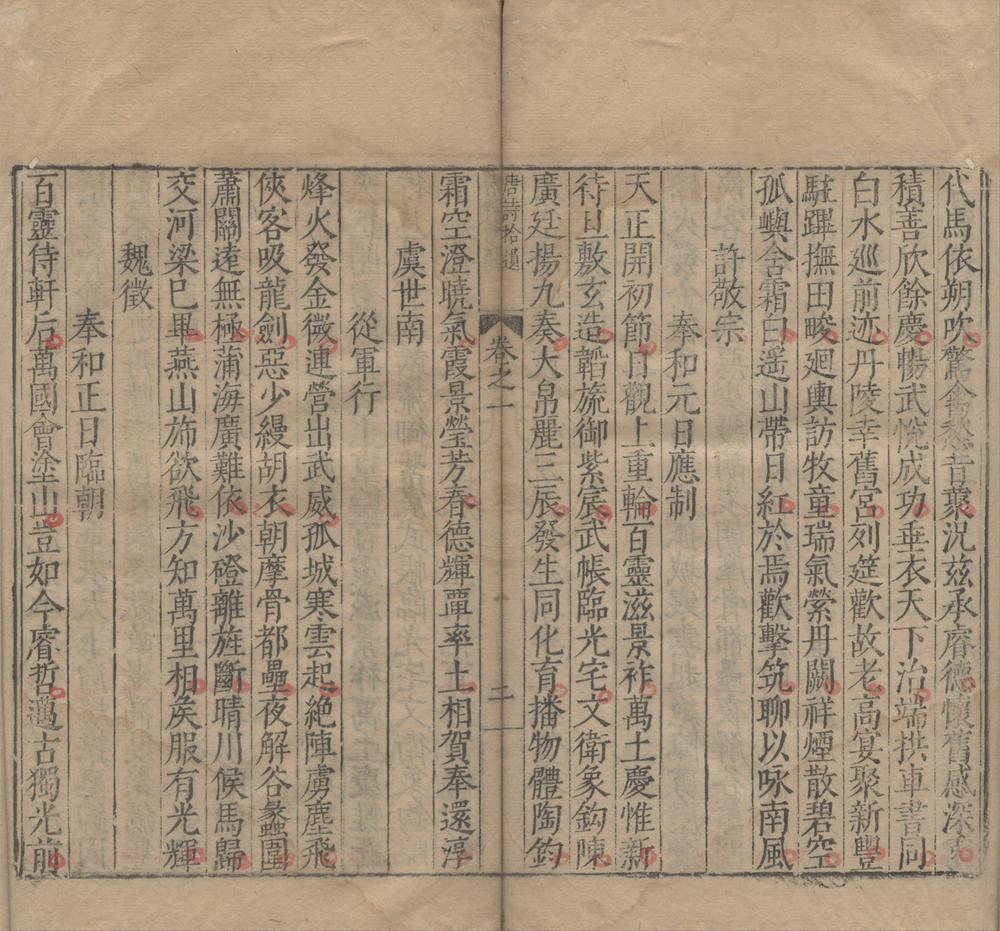 代馬依朔吹驚禽愁昔蘂況兹承睿德懷舊感深衷
積善欣餘慶暢武悅成功垂衣天下治端拱車書同
白水巡前迹丹陵幸舊宮列筵歡故老高宴聚新豐
駐蹕撫田畯廻輿訪牧童瑞氣縈丹闕祥煙散碧空
孤嶼含霜白遥山帶日紅於焉歡擊筑聊以咏南風
許敬宗
奉和元日應制
天正開初節日觀上重輪百靈滋景祚萬土慶惟新
待旦敷玄造韜旒御紫宸武帳臨光宅文衛象鈎陳
廣廷揚九奏大帛麗三辰發生同化育播物體陶鈞
唐詩拾遺
卷之一
二
霜空澄曉氣霞景瑩芳春德輝覃率土相賀奉還淳
虞世南
從軍行
烽火發金微連營出武威孤城寒雲起絶陣虜塵飛
俠客吸龍劍惡少縵胡衣朝摩骨都壘夜解谷蠡圍
蕭關遠無極蒲海廣難依沙磴離旌斷晴川候馬歸
交河梁已畢燕山斾欲飛方知萬里相矦服有光輝
魏徵
奉和正日臨朝
百靈侍軒后萬國會塗山豈如今睿哲邁古獨光前